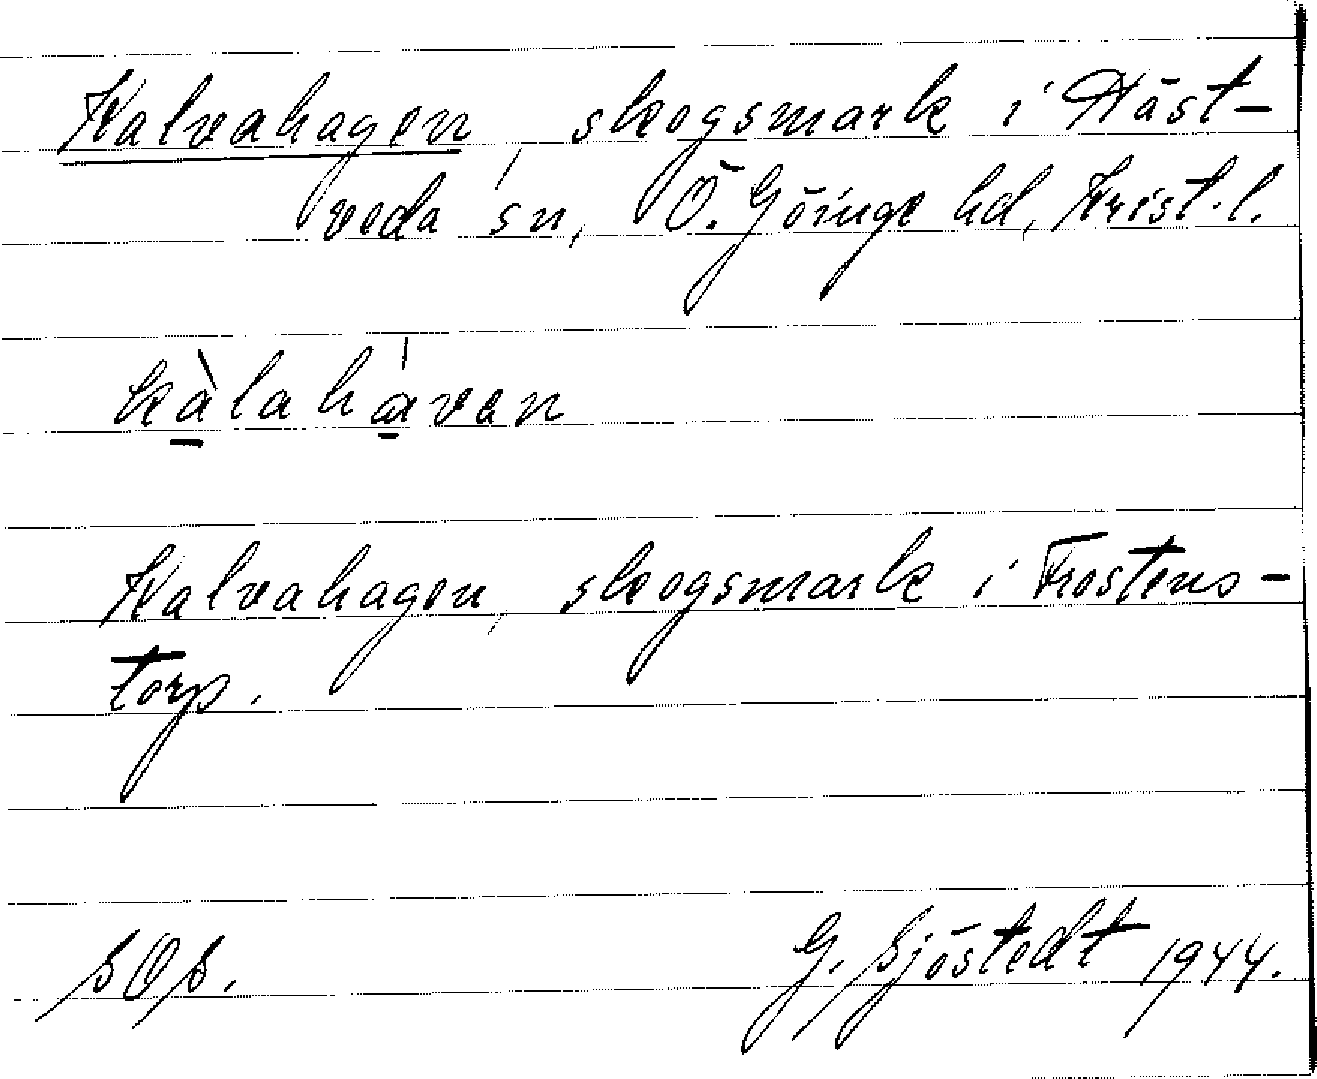 Kalvahagen, skogsmark i Häst-
veda sn, Ö. Göinge hd, Krist. l.
kàlahávan
Kalvahagen, skogsmark i Frostens-
torp.
SOS.
G. Sjöstedt 1944.